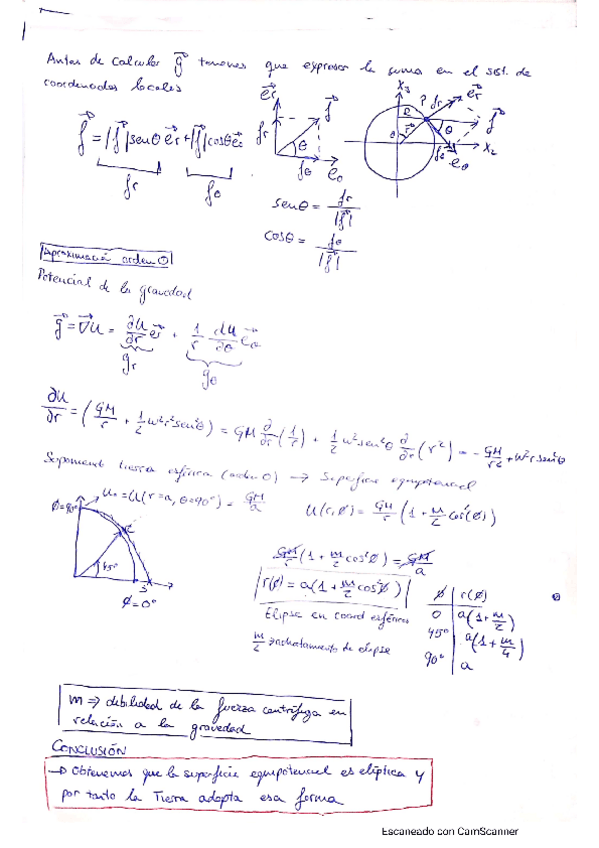 Antes de calcular g⃗ tenemos que expresar la suma en el sist. de
coordenadas locales
f⃗ = |f⃗|senθ e⃗r + |f⃗|cosθ e⃗θ
fr fθ
e⃗r fr f⃗ θ fθ eθ
X3 P fr e⃗r f⃗ θ r⃗ X2 eθ
senθ = fr/|f⃗|
cosθ = fθ/|f⃗|
Aproximación orden 0
Potencial de la gravedad
g⃗ = ∇⃗U = ∂U/∂r e⃗r + 1/r ∂U/∂θ e⃗θ
gr gθ
∂U/∂r = (GM/r + 1/2 ω²r²sen²θ) = GM ∂/∂r (1/r) + 1/2 ω²sen²θ ∂/∂r (r²) = -GM/r² + ω²r sen²θ
Suponemos tierra esférica (orden 0) → Superficie equipotencial
U0 = U(r=a, θ=90°) = GM/a
U(r,ϕ) = GM/r (1 + m/2 cos²ϕ)
ϕ=90°
45°
ϕ=0°
GM/r (1 + m/2 cos²ϕ) = GM/a
r(ϕ) = a(1 + m/2 cos²ϕ)
Elipse en coord esféricas
m/2 → achatamiento de elipse
ϕ r(ϕ)
0 a(1 + m/2)
45° a(1 + m/4)
90° a
m ⇒ debilidad de la fuerza centrífuga en
relación a la gravedad
CONCLUSIÓN
→ Obtenemos que la superficie equipotencial es elíptica y
por tanto la Tierra adopta esa forma
Escaneado con CamScanner